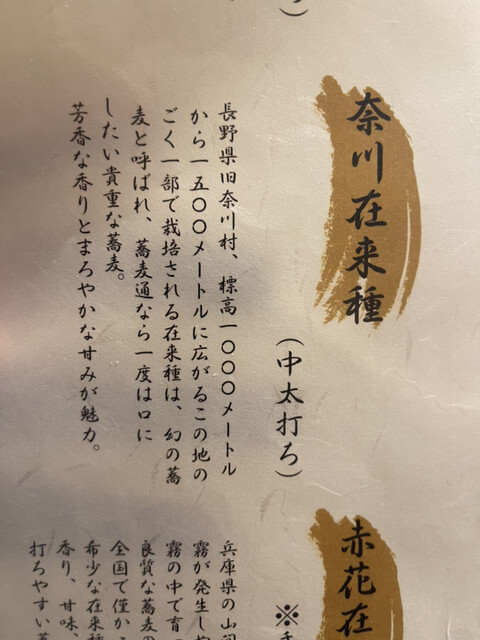 奈川在来種
（中太打ち）
長野県旧奈川村、標高一〇〇〇メートル
から一五〇〇メートルに広がるこの地の
ごく一部で栽培される在来種は、幻の蕎
麦と呼ばれ、蕎麦通なら一度は口に
したい貴重な蕎麦。
芳香な香りとまろやかな甘みが魅力。
赤花在
※
兵庫県の山間
霧が発生しや
霧の中で育
良質な蕎麦の
全国で僅か
希少な在来種
香り、甘味、
打ちやすい蕎